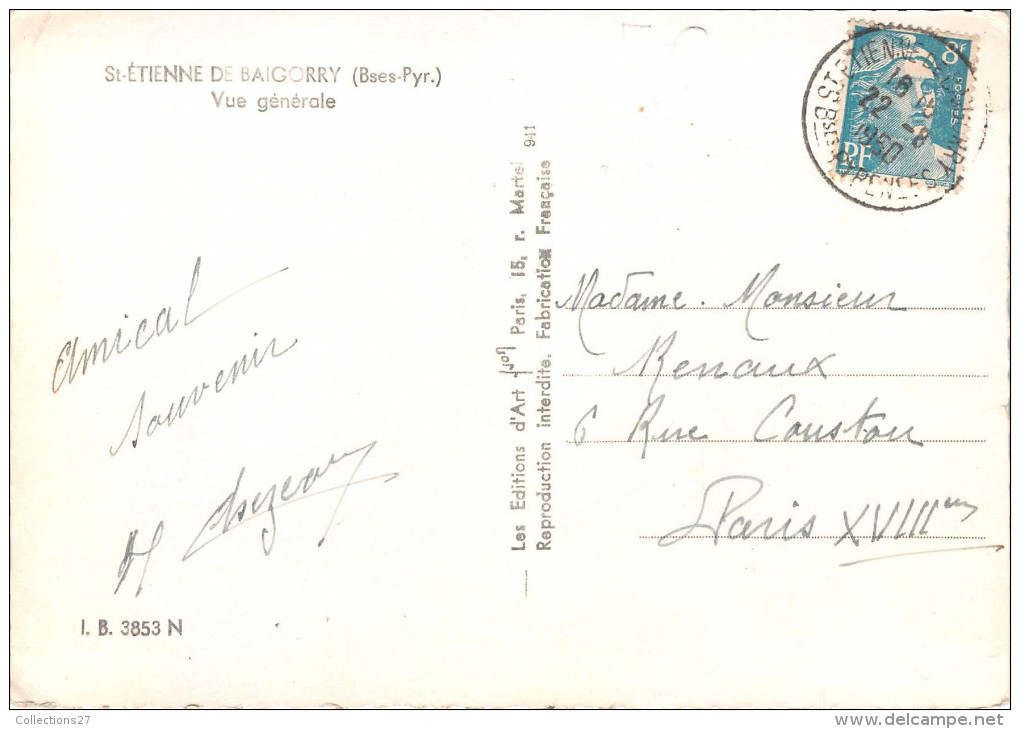 St-ÉTIENNE DE BAIGORRY (Bses-Pyr.)
Vue générale
Amical
souvenir
I. B. 3853 N
Les Editions d'Art Yvon Paris, 15, r. Martel 941
Reproduction interdite. Fabrication Française
8F
POSTES
RF
ST ETIENNE DE
Bses PYRENEES
18
22 -8
1950
Madame. Monsieur
Renaux
6 Rue Coustou
Paris XVIIIème
Collections27
www.delcampe.net